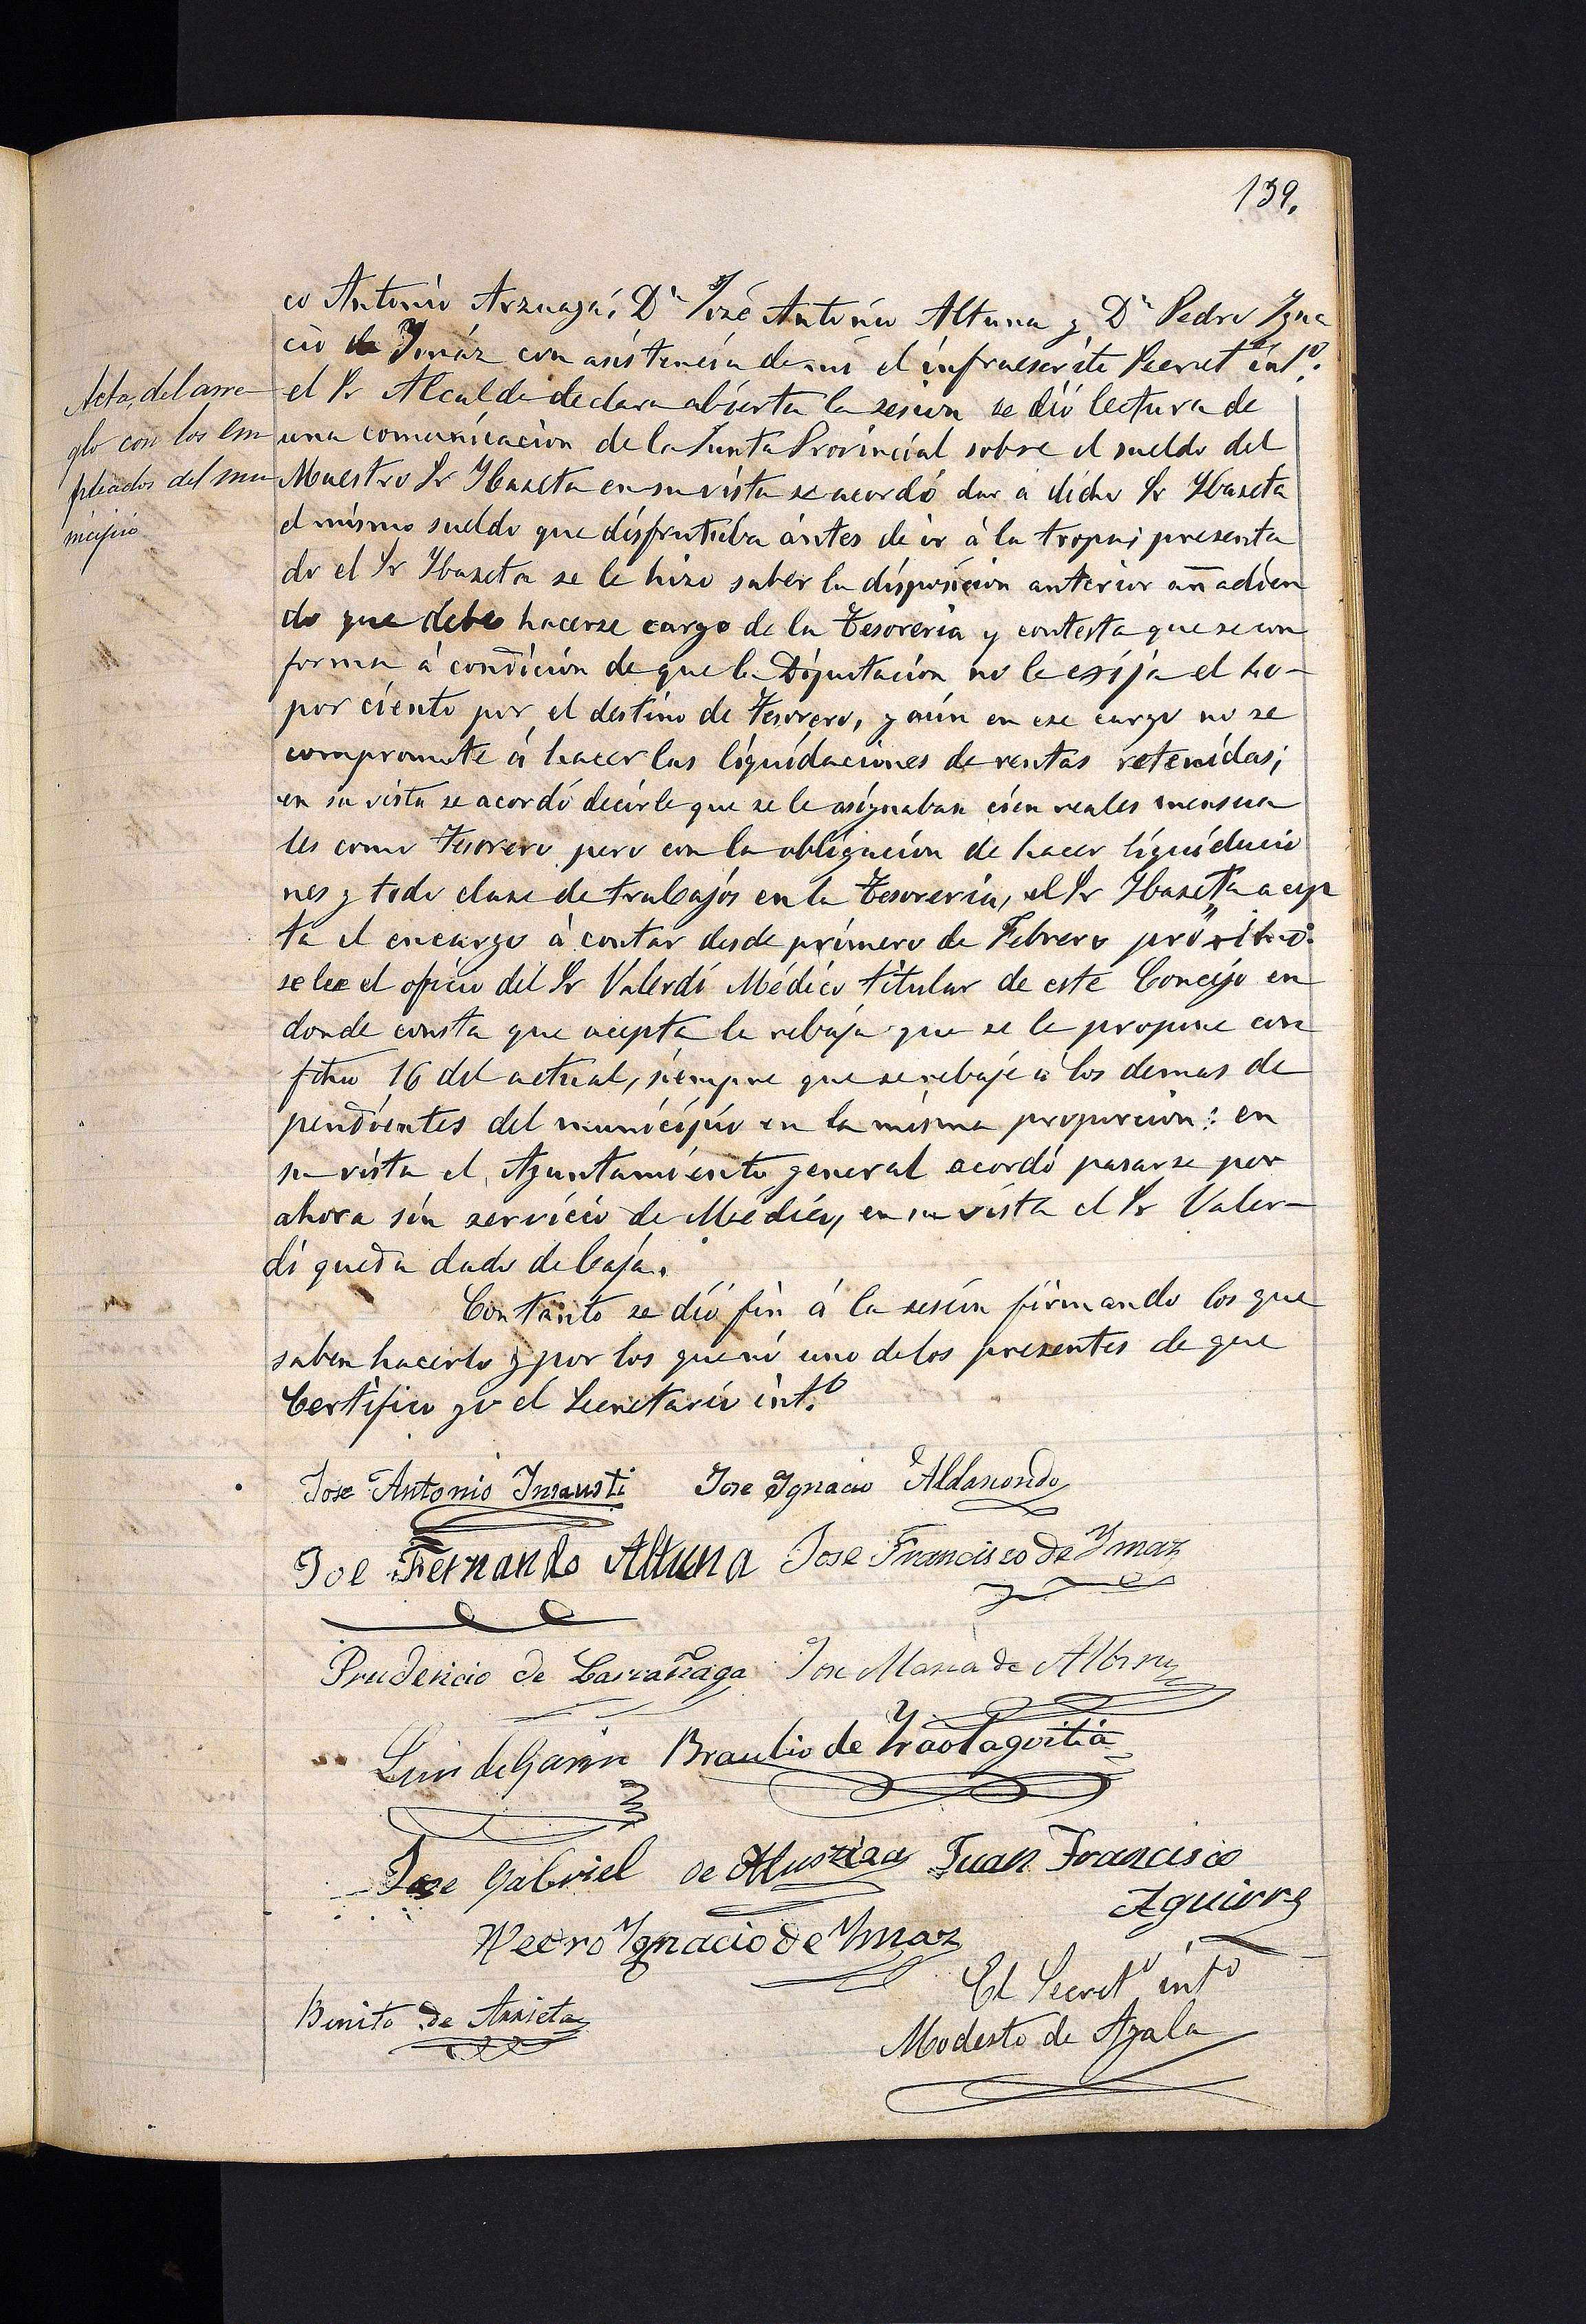 139.
co Antonio Arzuaga, Dn José Antonio Altuna y Dn Pedro Ygna
cio de Ymáz con asistencia de mi el infraescrito Secret int.o
el Sr Alcalde declara abierta la sesion se dió lectura de
una comunicacion de la Junta Provincial sobre el sueldo del
Maestro Sr Ybazeta en su vista se acordó dar á dicho Sr Ybazeta
el mismo sueldo que disfrutaba ántes de ir á la tropa; presenta
do el Sr Ybazeta se le hizo saber la disposicion anterior añadien
do que debe hacerse cargo de la Tesoreria y contesta que se con
forma á condicion de que la Diputacion no le exija el
por ciento por el destino de Tesorero, y aún en ese cargo no se
compromete á hacer las liquidaciones de rentas retenidas;
en su vista se acordó decirle que se le asignaban cien reales mensua
les como Tesorero pero con la obligacion de hacer liquidacio
nes y todo clase de trabajos en la Tesoreria, el Sr Ybazeta acep
ta el encargo á contar desde primero de Febrero próximo:
se lee el oficio del Sr Valerdi Médico titular de este Concejo en
donde consta que acepta la rebaja que se le propone con
fha 16 del actual, siempre que se rebaje á los demas de
pendientes del municipio en la misma proporcion: en
su vista el Ayuntamiento general acordó pasarse por
ahora sin servicio de Medico, en su vista el Sr Valer-
di queda dado de baja.
Con tanto se dió fin á la sesion firmando los que
saben hacerlo y por los que nó uno de los presentes de que
Certifico yo el Secretario int.o
Acta, del arre
glo con los em
pleados del mu
nicipio
Jose Antonio Insausti Jose Ygnacio Aldanondo
Jose Fernando Altuna Jose Francisco de Ymaz
Prudencio de Larrañaga Jose Maria de Albisu
Luis de Garin Braulio de Yraolagoitia
Jose Gabriel de Juan Francisco
Aguirre
Pedro Ygnacio de Ymaz
El Secreto into
Benito de Arrieta
Modesto de Ayala